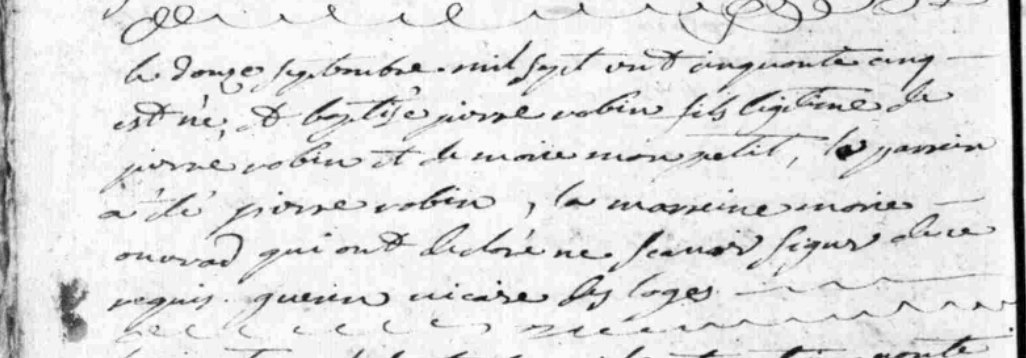 le douze septembre mil sept cent cinquante cinq
est né, et baptisé pierre robin fils légitime de
pierre robin et de marie mon petit, le parrein
a été pierre robin, la marreine marie
ouvrad qui ont declaré ne scavoir signer de ce
requis. guerin vicaire des loges